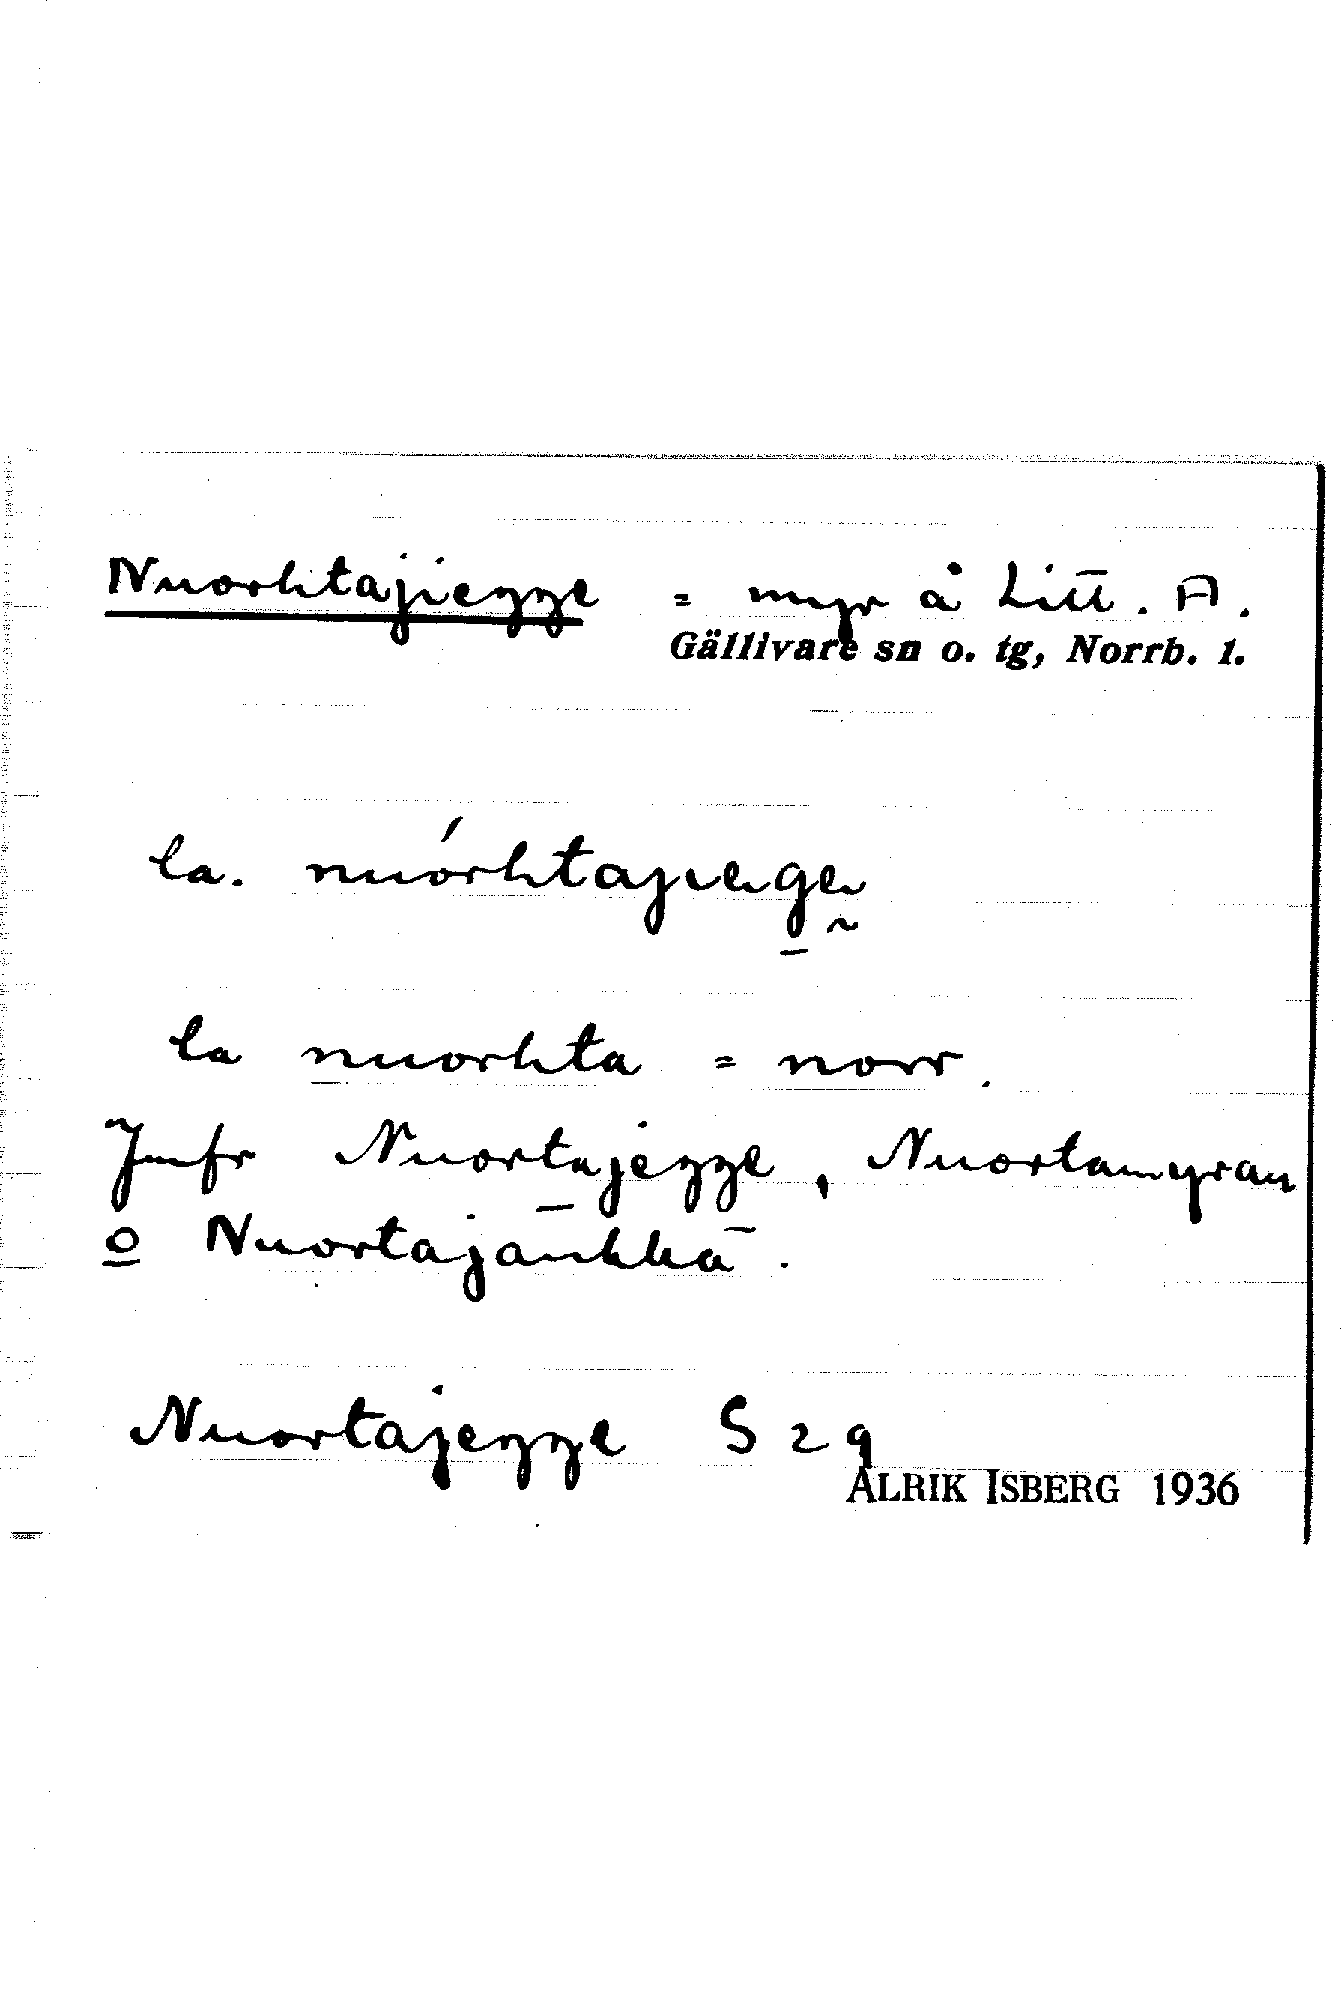 Nuorhtajiegge = myr å Litt. A.
Gällivare sn o. tg, Norrb. l.
la. nuórhtajiegge
la nuorhta = norr.
Jmfr Nuortajegge, Nuortamyran
o Nuortajänkkä.
Nuortajegge S 29
ALRIK ISBERG 1936